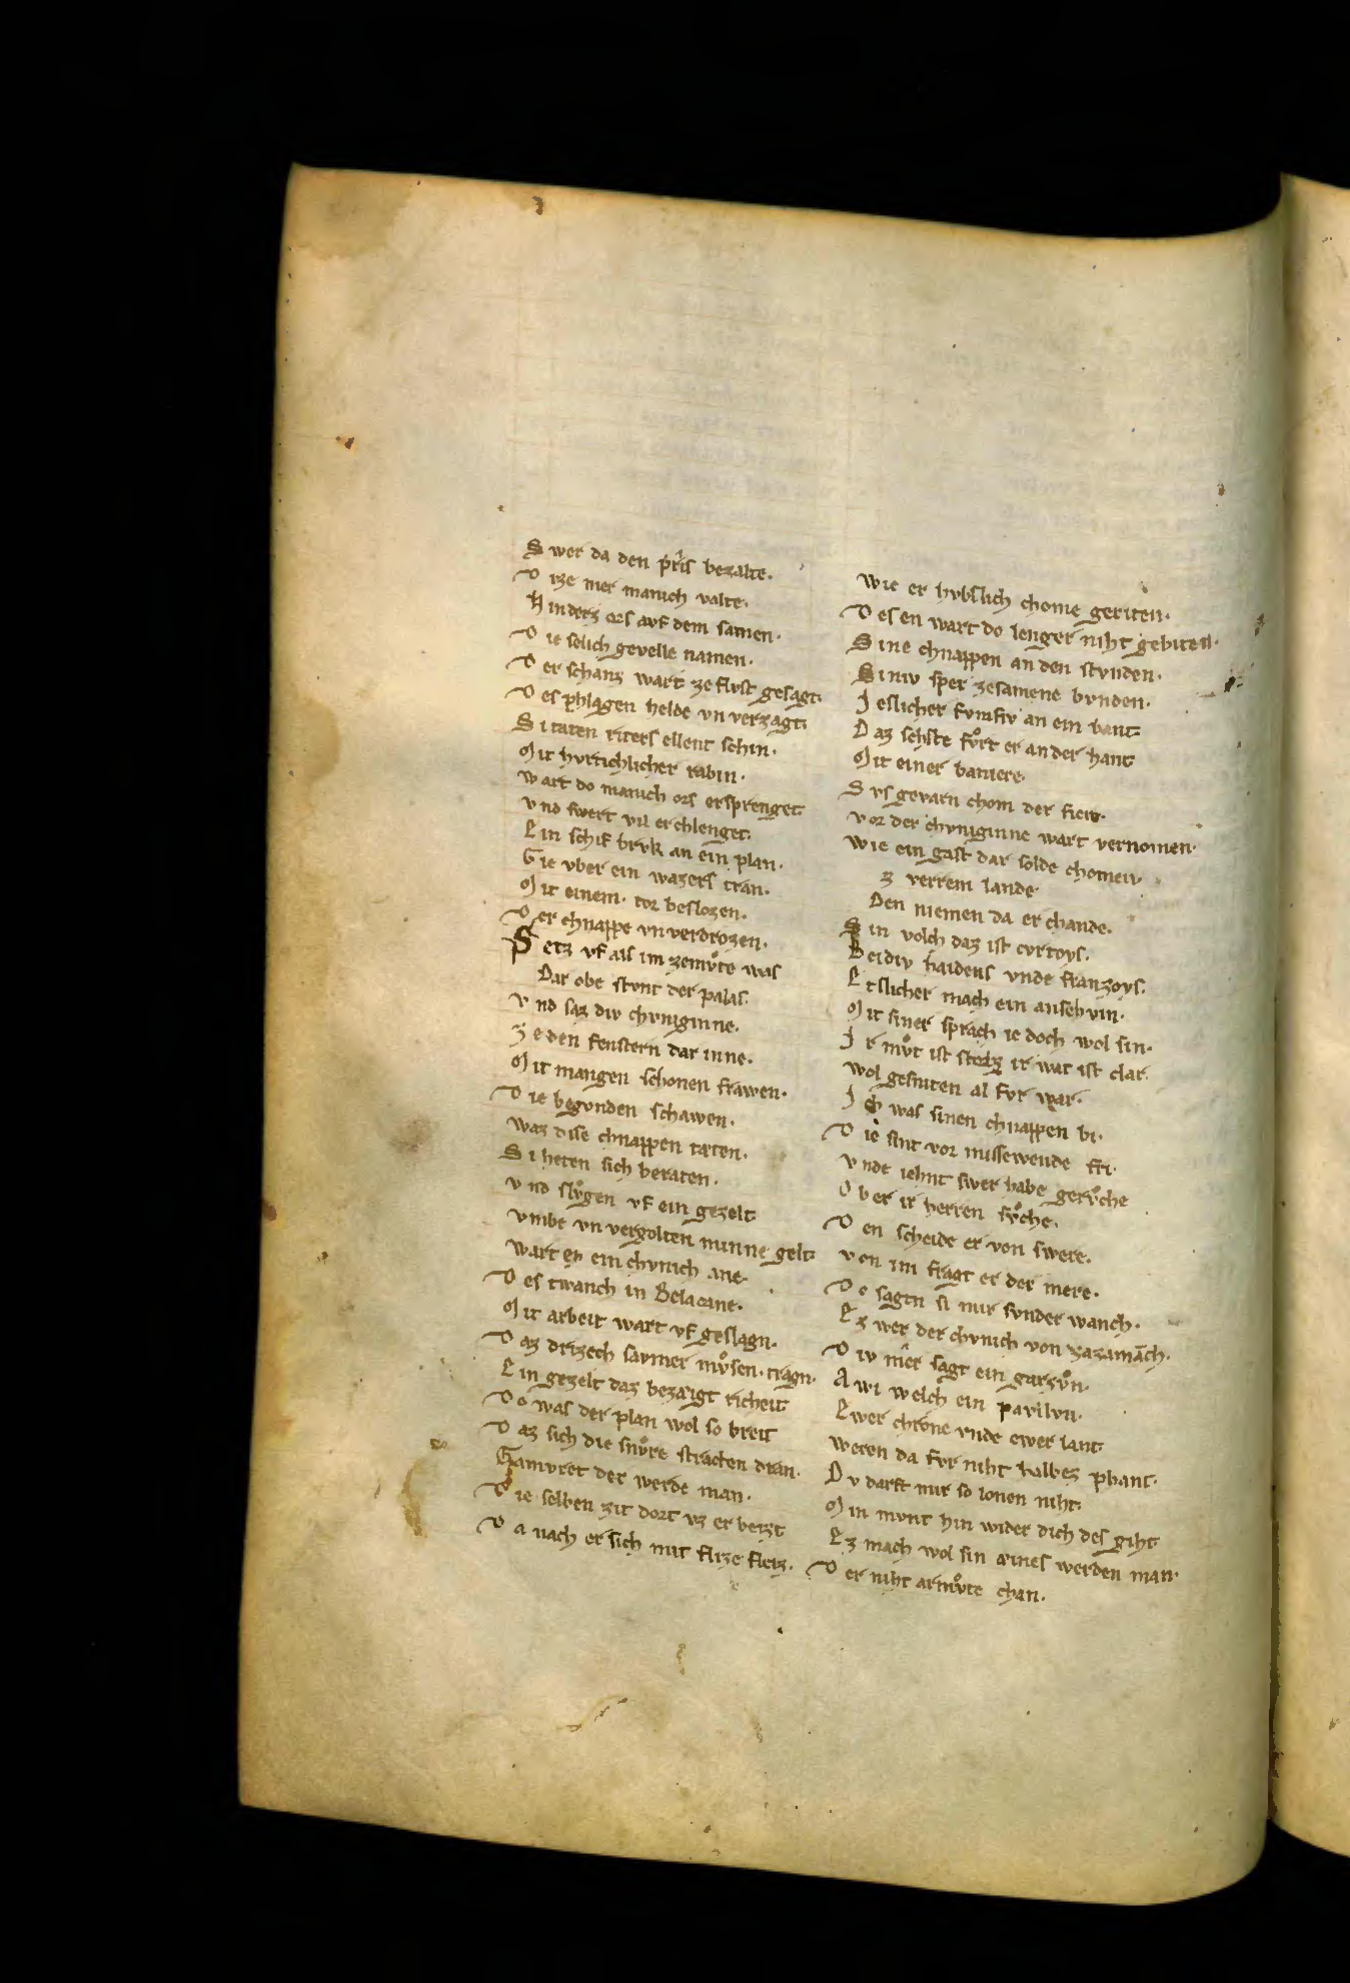 S wer da den pris bezalte.
D ize mer manich valte.
H inderz ors avf dem samen.
D ie selich gevelle namen.
D er schanz wart ze flvst gesagt.
D es phlagen helde vn verzagt.
S i taten riters ellent schin.
M it hvrtichlicher rabin.
W art do manich ors ersprenget.
V nd swert vil erchlenget.
E in schif brvk an ein plan.
G ie vber ein wazers tran.
M it einem. tor beslozen.
D er chnappe vn verdrozen.
S etz vf als im zemvͦte was
Dar obe stvnt der palas.
V nd saz div chvniginne.
Z e den fenstern dar inne.
M it mangen schonen frawen.
D ie begvnden schawen.
Waz disse chnappen tæten.
S i heten sich beraten.
V nd slvͦgen vf ein gezelt
Vmbe vn vergolten minne gelt.
Wart en ein chvnich ane.
D es twanch in Belacane.
M it arbeit wart vf geslagn.
D az drizech savmer mvͦsen. tragn.
E in gezelt daz bezaigt richeit
D o was der plan wol so breit
D az sich die snvͦre stracten dran.
Gamvret der werde man.
D ie selben zit dort vz er beizt
D a nach er sich mit flize fleiz.
Wie er hvbslich chome geriten.
D es en wart do lenger niht gebiten.
S ine chnappen an den stvnden.
Siniv sper zesamene bvnden.
J eslicher fvmfiv an ein bant
D az sehste fvͦrt er an der hant
M it einer baniere.
S vs gevarn chom der fier.
Vor der chvniginne wart vernomen.
Wie ein gast dar solde chomen.
z verrem lande
Den niemen da er chande.
S in volch daz ist cvrtoys.
Beidiv haidens vnde franzoys.
E tslicher mach ein ansehvin.
M it siner sprach ie doch wol sin.
J r mvͦt ist stoltz ir wat ist clar.
Wol gesniten al fvr war.
J ch was sinen chnappen bi.
D ie sint vor missewende fri.
V nde iehnt swer habe gervͦche
O b er ir herren svͦche.
D en scheide er von swere.
V on im fragt er der mere.
D o sagtn si mir svnder wanch.
E z wer der chvnich von zazamāch.
D iv mer sagt ein garzvͦn.
A wi welch ein pavilvn.
Ewer chrone vnde ewer lant
Weren da fvr niht halbez phant.
D v darft mir so lonen niht.
M in mvnt hin wider dich des giht
E z mach wol sin eines werden man.
D er niht armvͦte chan.